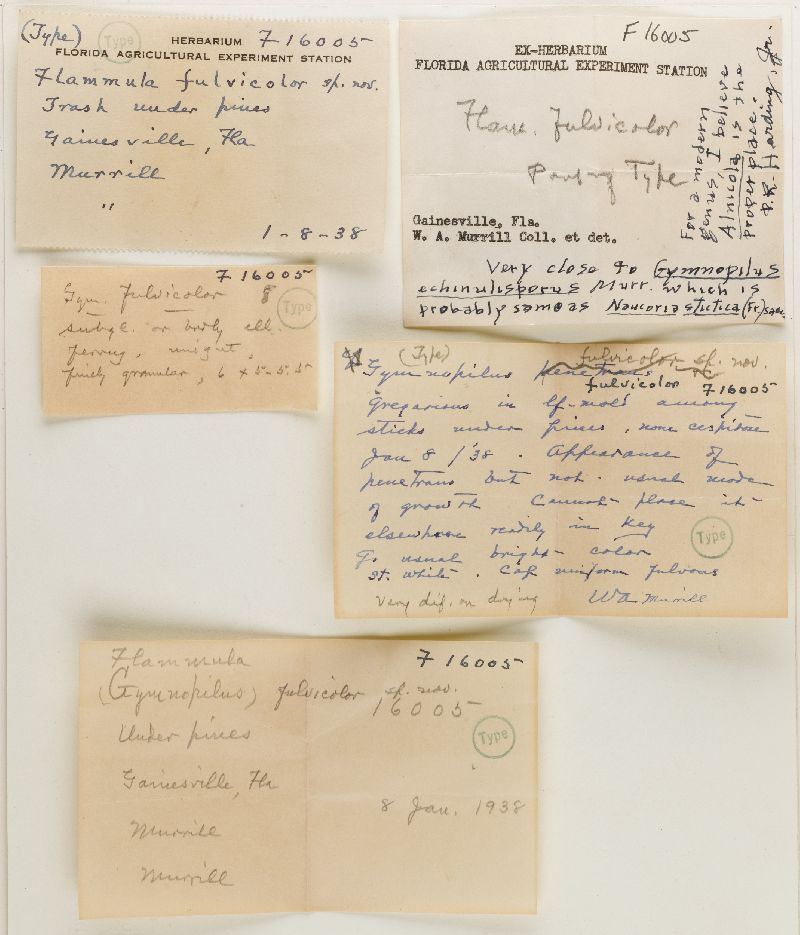 (Type) Type HERBARIUM F16005
FLORIDA AGRICULTURAL EXPERIMENT STATION
Flammula fulvicolor sp. nov.
Trash under pines
Gainesville, Fla
Murrill
"
1-8-38
F16005
EX-HERBARIUM
FLORIDA AGRICULTURAL EXPERIMENT STATION
Flam. fulvicolor
Part of Type
Gainesville, Fla.
W. A. Murrill Coll. et det.
For a modern
genus, I believe
Alnicola is the
proper place.
P.R. Harding, Jr.
Very close to Gymnopilus
echinulisporus Murr. which is
probably same as Naucoria stictica (Fr) Sacc.
F16005
Gym. fulvicolor 8
Type
subgl. or brdly ell.
ferrug, unigut,
finely granular, 6 x 5-5.5
(Type) fulvicolor sp. nov.
Gymnopilus penetrans
fulvicolor F16005
Gregarious in lf-mold among
sticks under pines, none cespitose
Jan 8/'38. Appearance of
penetrans but not usual mode
of growth Cannot place it
elsewhere readily in key
Type
G. usual bright color
St. white. Cap uniform fulvous
Very dif. on drying WA Murrill
Flammula F16005
(Gymnopilus) fulvicolor sp. nov.
16005
Under pines
Type
Gainesville, Fla
8 Jan. 1938
Murrill
Murrill